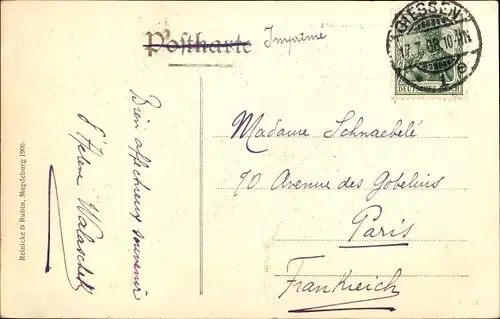 Postkarte
Imprimé
GIESSEN
17.7.08.10-11
DEUTSCHES REICH
Madame Schnaebelé
70 Avenue des Gobelins
Paris
Frankreich
Bien affectueux souvenir
d'Helene Walaschek
Reinicke & Rubin, Magdeburg 1906.